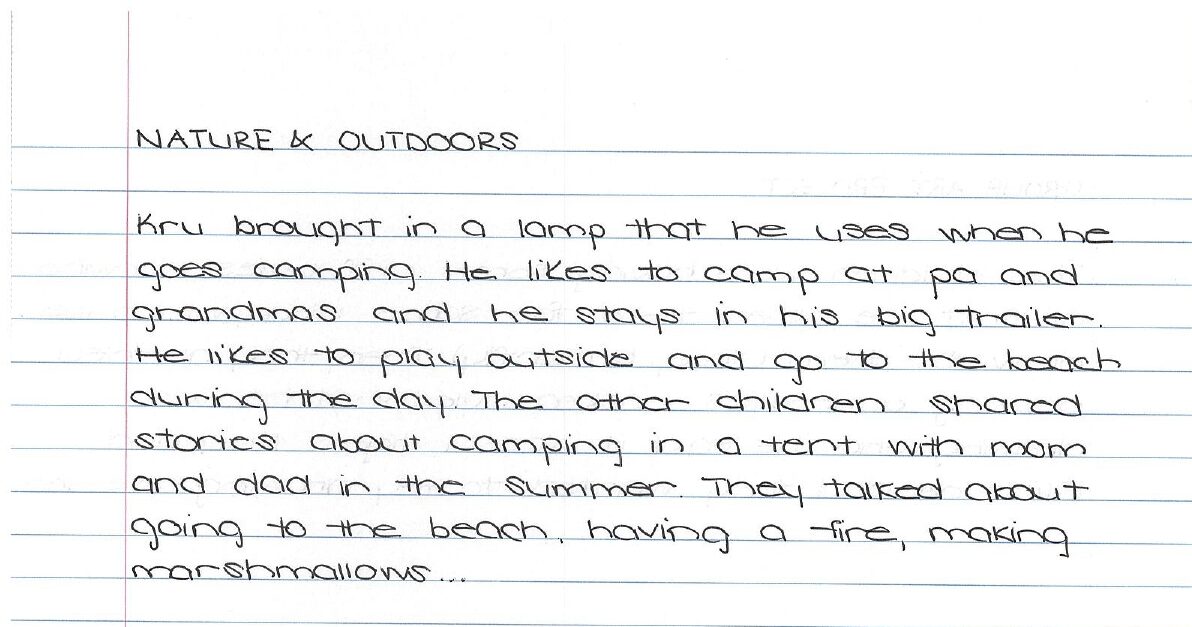 NATURE & OUTDOORS
Kru brought in a lamp that he uses when he
goes camping. He likes to camp at pa and
grandmas and he stays in his big trailer.
He likes to play outside and go to the beach
during the day. The other children shared
stories about camping in a tent with mom
and dad in the summer. They talked about
going to the beach, having a fire, making
marshmallows...